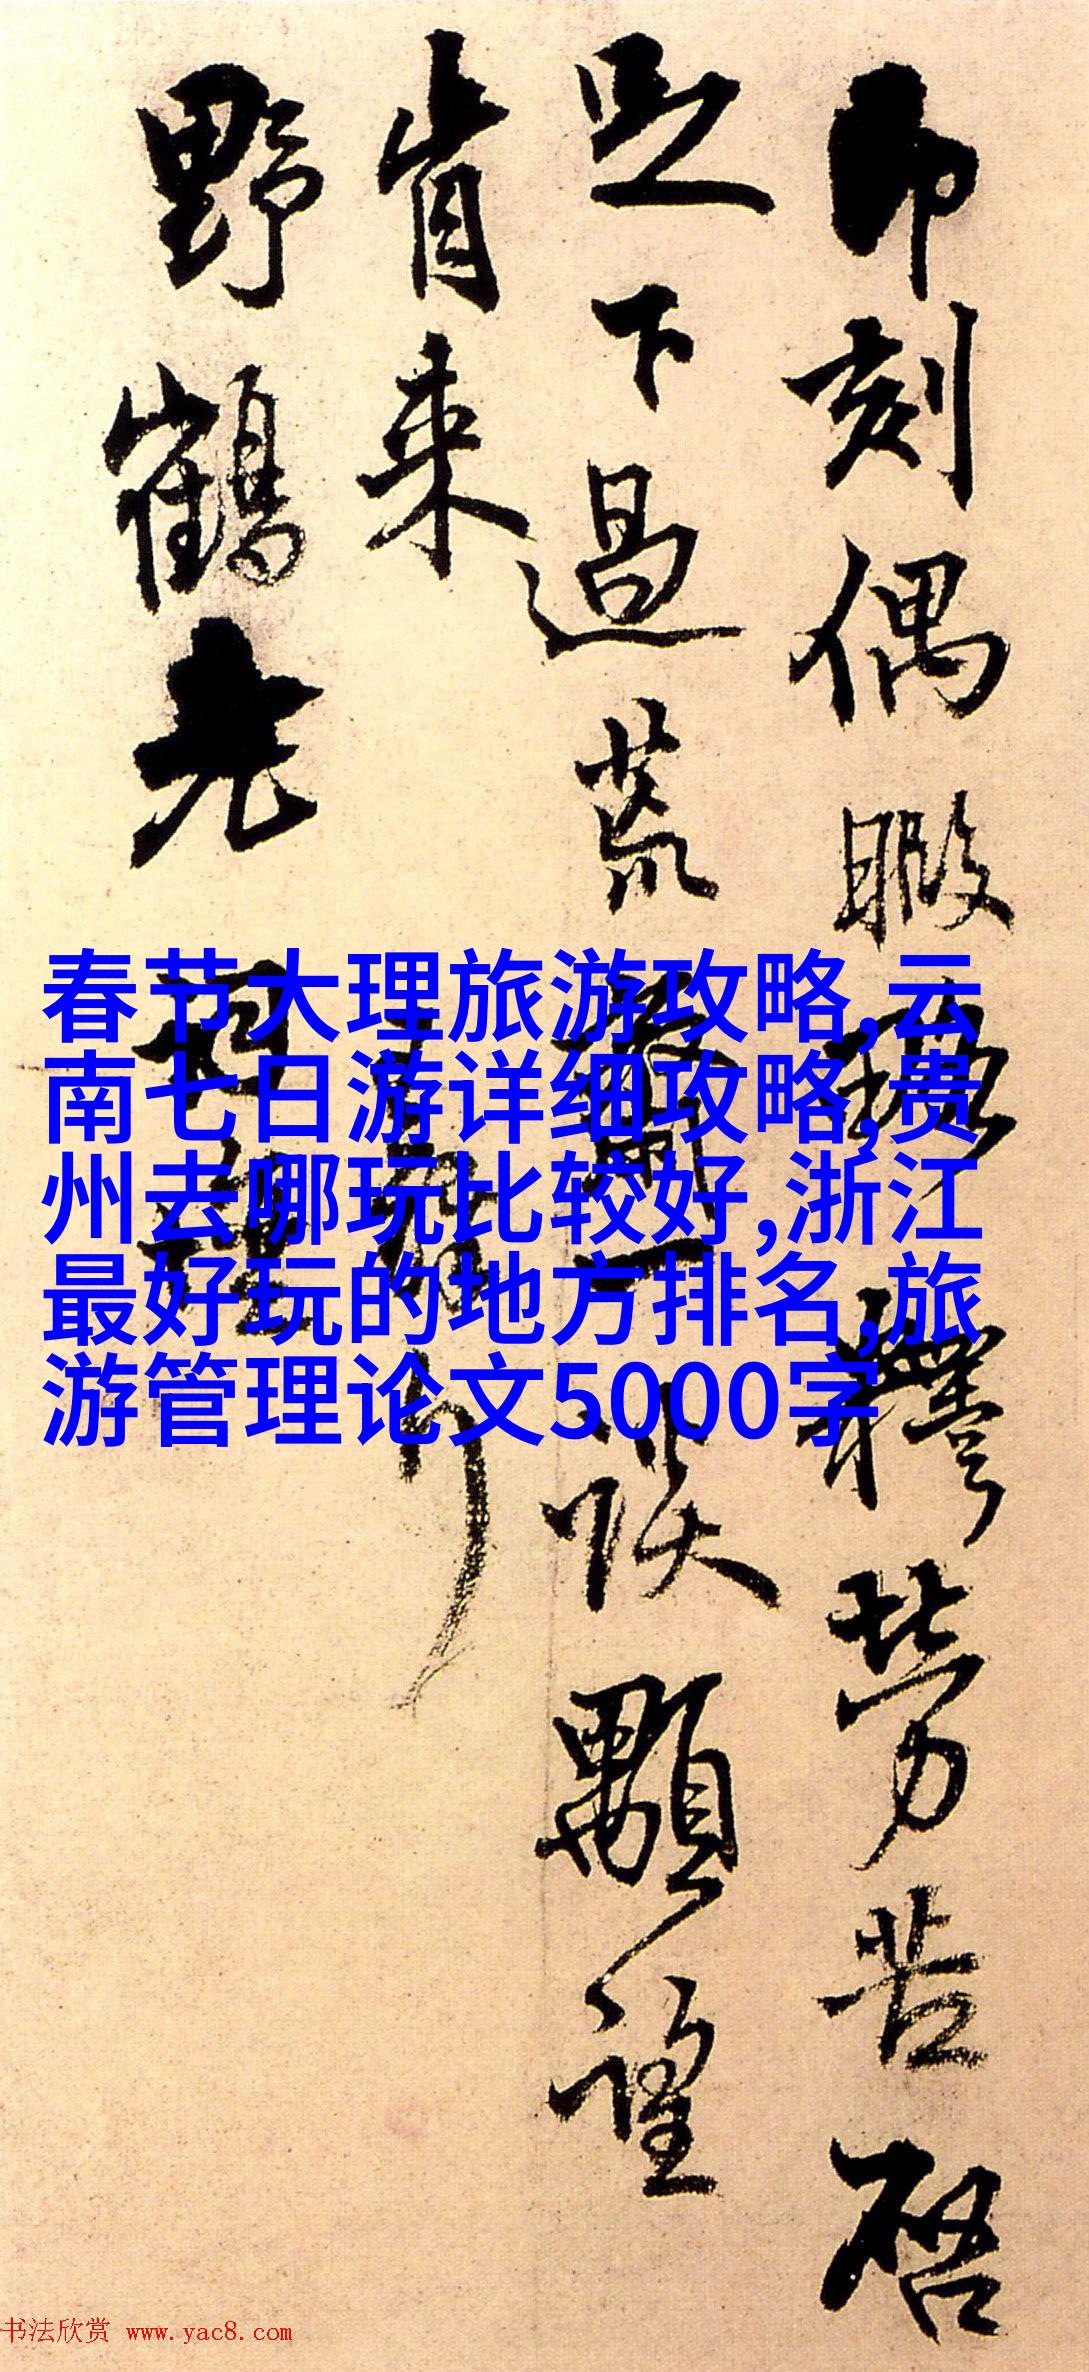 即刻偶暇 釋勞苦啓
足下過荒齋一談顒望
肯來
野鶴先
春节大理旅游攻略,云
南七日游详细攻略,贵
州去哪玩比较好,浙江
最好玩的地方排名,旅
游管理论文5000字
书法欣赏 www.yac8.com